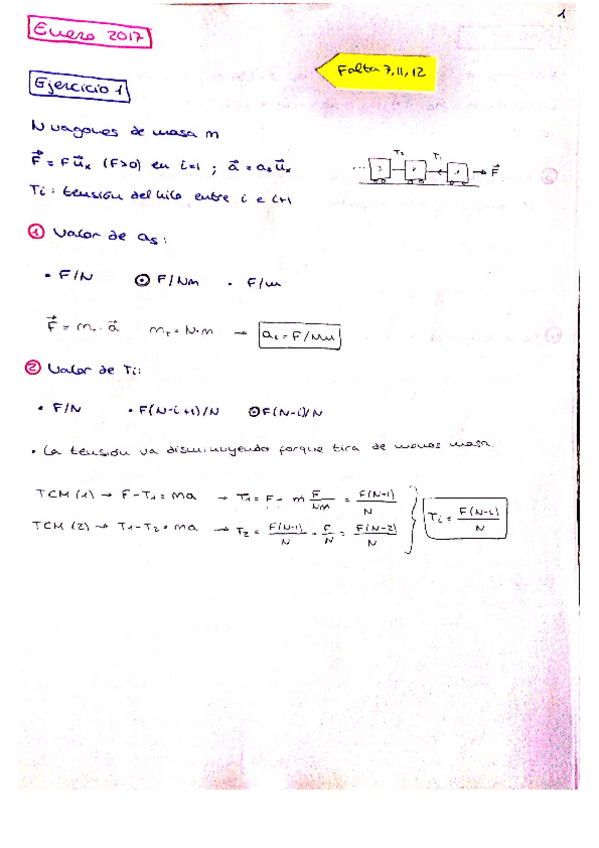 1
Enero 2017
Falta 7, 11, 12
Ejercicio 1
N vagones de masa m
F⃗ = F u⃗x (F>0) en i=1 ; a⃗ = as u⃗x
Ti : tensión del hilo entre i e i+1
... 3 T2 2 T1 1 → F⃗
① Valor de as :
• F/N ⊙ F/Nm • F/m
F⃗ = mT · a⃗ mT = N·m → as = F/Nm
② Valor de Ti:
• F/N • F(N-i+1)/N ⊙ F(N-i)/N
• La tensión va disminuyendo porque tira de menos masa.
TCM (1) → F - T1 = ma → T1 = F - m F/Nm = F(N-1)/N
TCM (2) → T1 - T2 = ma → T2 = F(N-1)/N - F/N = F(N-2)/N } Ti = F(N-i)/N